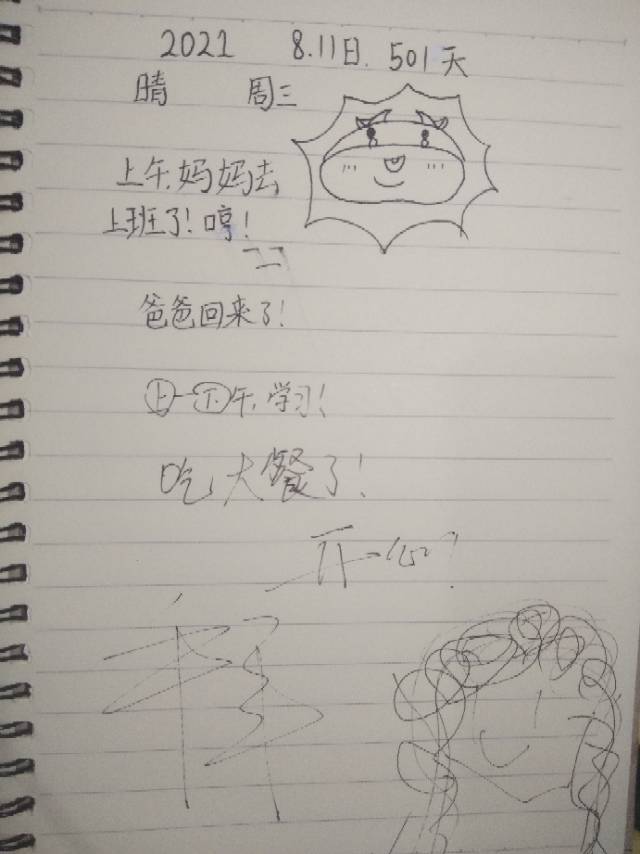 2021 8.11日. 501天
晴 周三
上午,妈妈去
上班了!哼!
爸爸回来了!
上一下午,学习!
吃大餐了!
开一心!